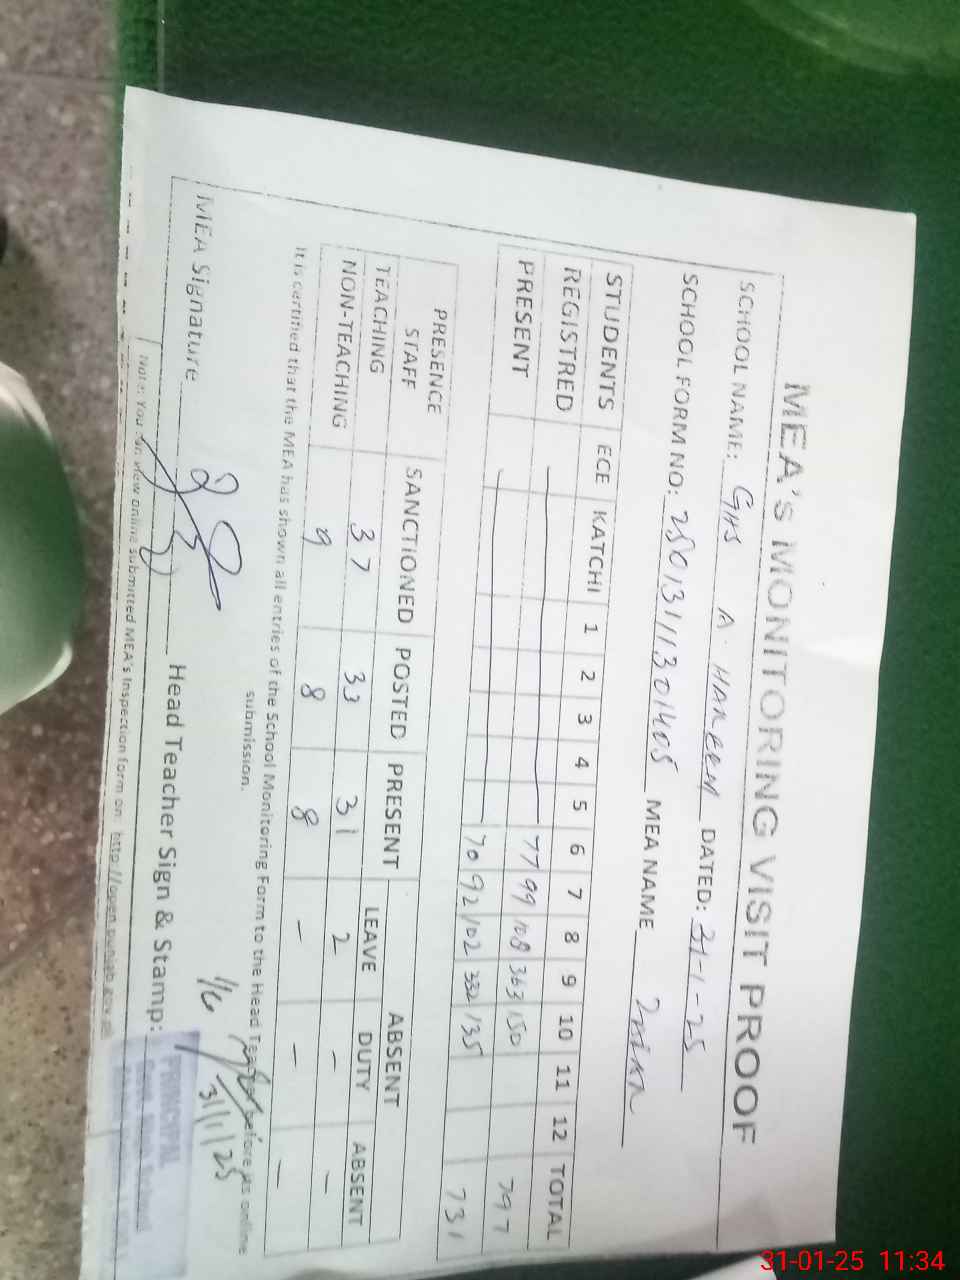 MEA'S MONITORING VISIT PROOF
SCHOOL NAME: GHS A. HAKEEM DATED: 31-1-25
SCHOOL FORM NO: 25013111301405 MEA NAME
STUDENTS ECE KATCHI 1 2 3 4 5 6 7 8 9 10 11 12 TOTAL
REGISTRED 77 99 108 363 150 797
PRESENT 70 92 102 332 135 731
PRESENCE STAFF SANCTIONED POSTED PRESENT ABSENT
LEAVE DUTY ABSENT
TEACHING 37 33 31 2 - -
NON-TEACHING 9 8 8 - - -
It is certified that the MEA has shown all entries of the School Monitoring Form to the Head Teacher before its online
submission.
MEA Signature Head Teacher Sign & Stamp:
I/C
31/1/25
PRINCIPAL
Note: You can view online submitted MEA's Inspection form on: http://open.punjab.gov.pk
31-01-25 11:34